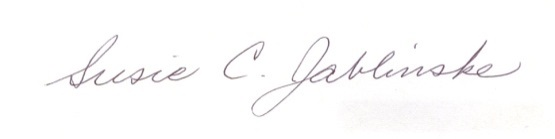 Susie C. Jablinske